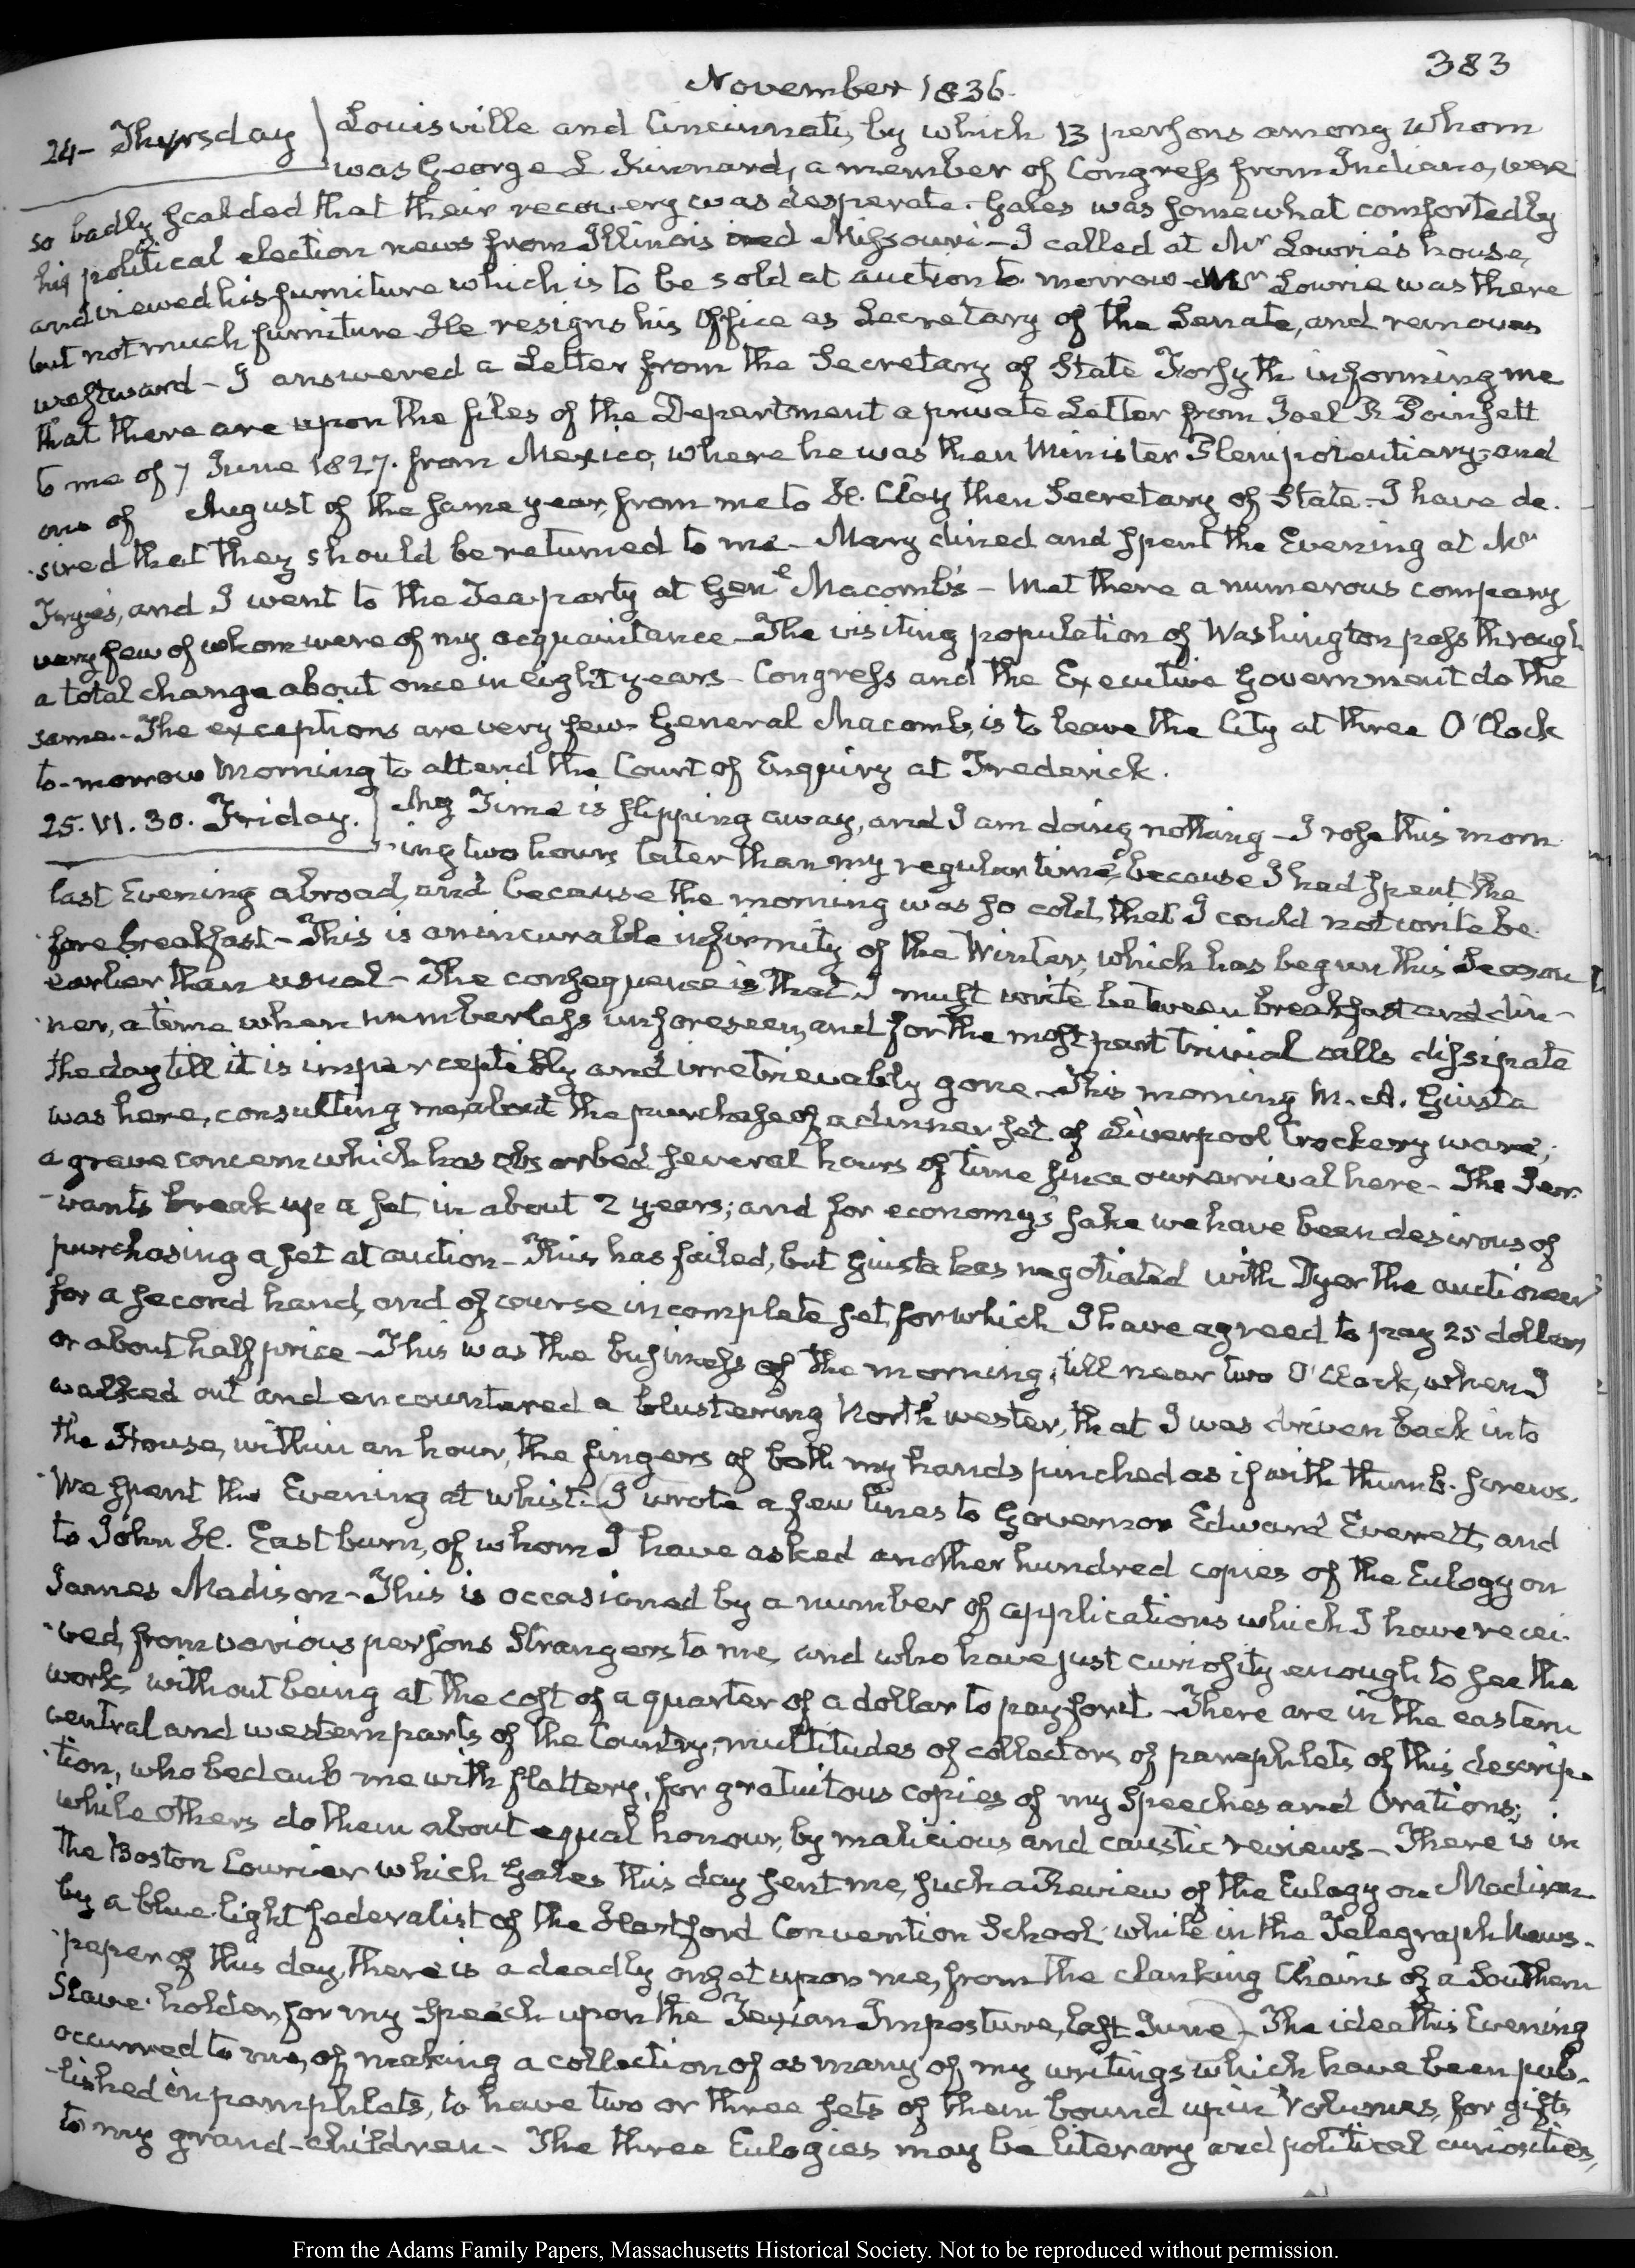 383
November 1836.
24 - Thursday
Louisville and Cincinnati, by which 13 persons among whom
was George L. Kinnard, a member of Congress from Indiana, were
so badly scalded that their recovery was desperate. Gales was somewhat comforted by
his political election news from Illinois and Missouri - I called at Mr Lowrie's house,
and viewed his furniture which is to be sold at auction to morrow - Mr Lowrie was there
but not much furniture He resigns his Office as Secretary of the Senate, and removes
westward - I answered a Letter from the Secretary of State Forsyth informing me
that there are upon the files of the Department a private Letter from Joel R Poinsett
to me of 7 June 1827. from Mexico, where he was then Minister Plenipotentiary, and
one of August of the same year, from me to H. Clay then Secretary of State. - I have de-
sired that they should be returned to me - Mary dined and spent the Evening at Mr
Frye's, and I went to the Tea party at Genl Macomb's - Met there a numerous company,
very few of whom were of my acquaintance - The visiting population of Washington pass through
a total change about once in eight years - Congress and the Executive Government do the
same - The exceptions are very few - General Macomb, is to leave the City at three O'Clock
to-morrow Morning to attend the Court of Enquiry at Frederick.
25. VI. 30. Friday.
My Time is slipping away, and I am doing nothing - I rose this morn-
ing two hours later than my regular time, because I had spent the
last Evening abroad, and because the morning was so cold, that I could not write be-
fore breakfast - This is an incurable infirmity of the Winter, which has begun this Season
earlier than usual - The consequence is that I must write between breakfast and din-
ner, a time when numberless unforeseen, and for the most part trivial calls dissipate
the day till it is imperceptibly and irretrievably gone - This morning M. A. Giusta
was here, consulting me, about the purchase of a dinner set of Liverpool Crockery ware;
a grave concern which has absorbed several hours of time since our arrival here - The Ser-
vants break up a set in about 2 years; and for economy's sake we have been desirous of
purchasing a set at auction - This has failed, but Giusta has negotiated with Dyer the auctioneer
for a second hand, and of course incomplete set, for which I have agreed to pay 25 dollars
or about half price - This was the business of the morning; till near two O'Clock, when I
walked out and encountered a blustering North wester, that I was driven back into
the House, within an hour, the fingers of both my hands pinched as if with thumb-screws.
We spent the Evening at whist. I wrote a few lines to Governor Edward Everett, and
to John H. Eastburn, of whom I have asked another hundred copies of the Eulogy on
James Madison - This is occasioned by a number of applications which I have recei-
ved, from various persons Strangers to me, and who have just curiosity enough to see the
work, without being at the cost of a quarter of a dollar to pay for it - There are in the eastern
central and western parts of the Country, multitudes of collectors of pamphlets of this descrip-
tion, who bedaub me with flattery, for gratuitous copies of my Speeches and Orations;
while others do them about equal honour, by malicious and caustic reviews - There is in
the Boston Courier which Gales this day sent me, such a Review of the Eulogy on Madison
by a blue-light federalist of the Hartford Convention School; while in the Telegraph News-
paper of this day, there is a deadly onset upon me, from the clanking Chains of a Southern
Slave-holder, for my Speech upon the Texian Imposture, last June) - The idea this Evening
occurred to me, of making a collection of as many of my writings which have been pub-
lished in pamphlets, to have two or three sets of them bound up in Volumes, for gifts
to my grand-children - The three Eulogies may be literary and political curiosities,
From the Adams Family Papers, Massachusetts Historical Society. Not to be reproduced without permission.